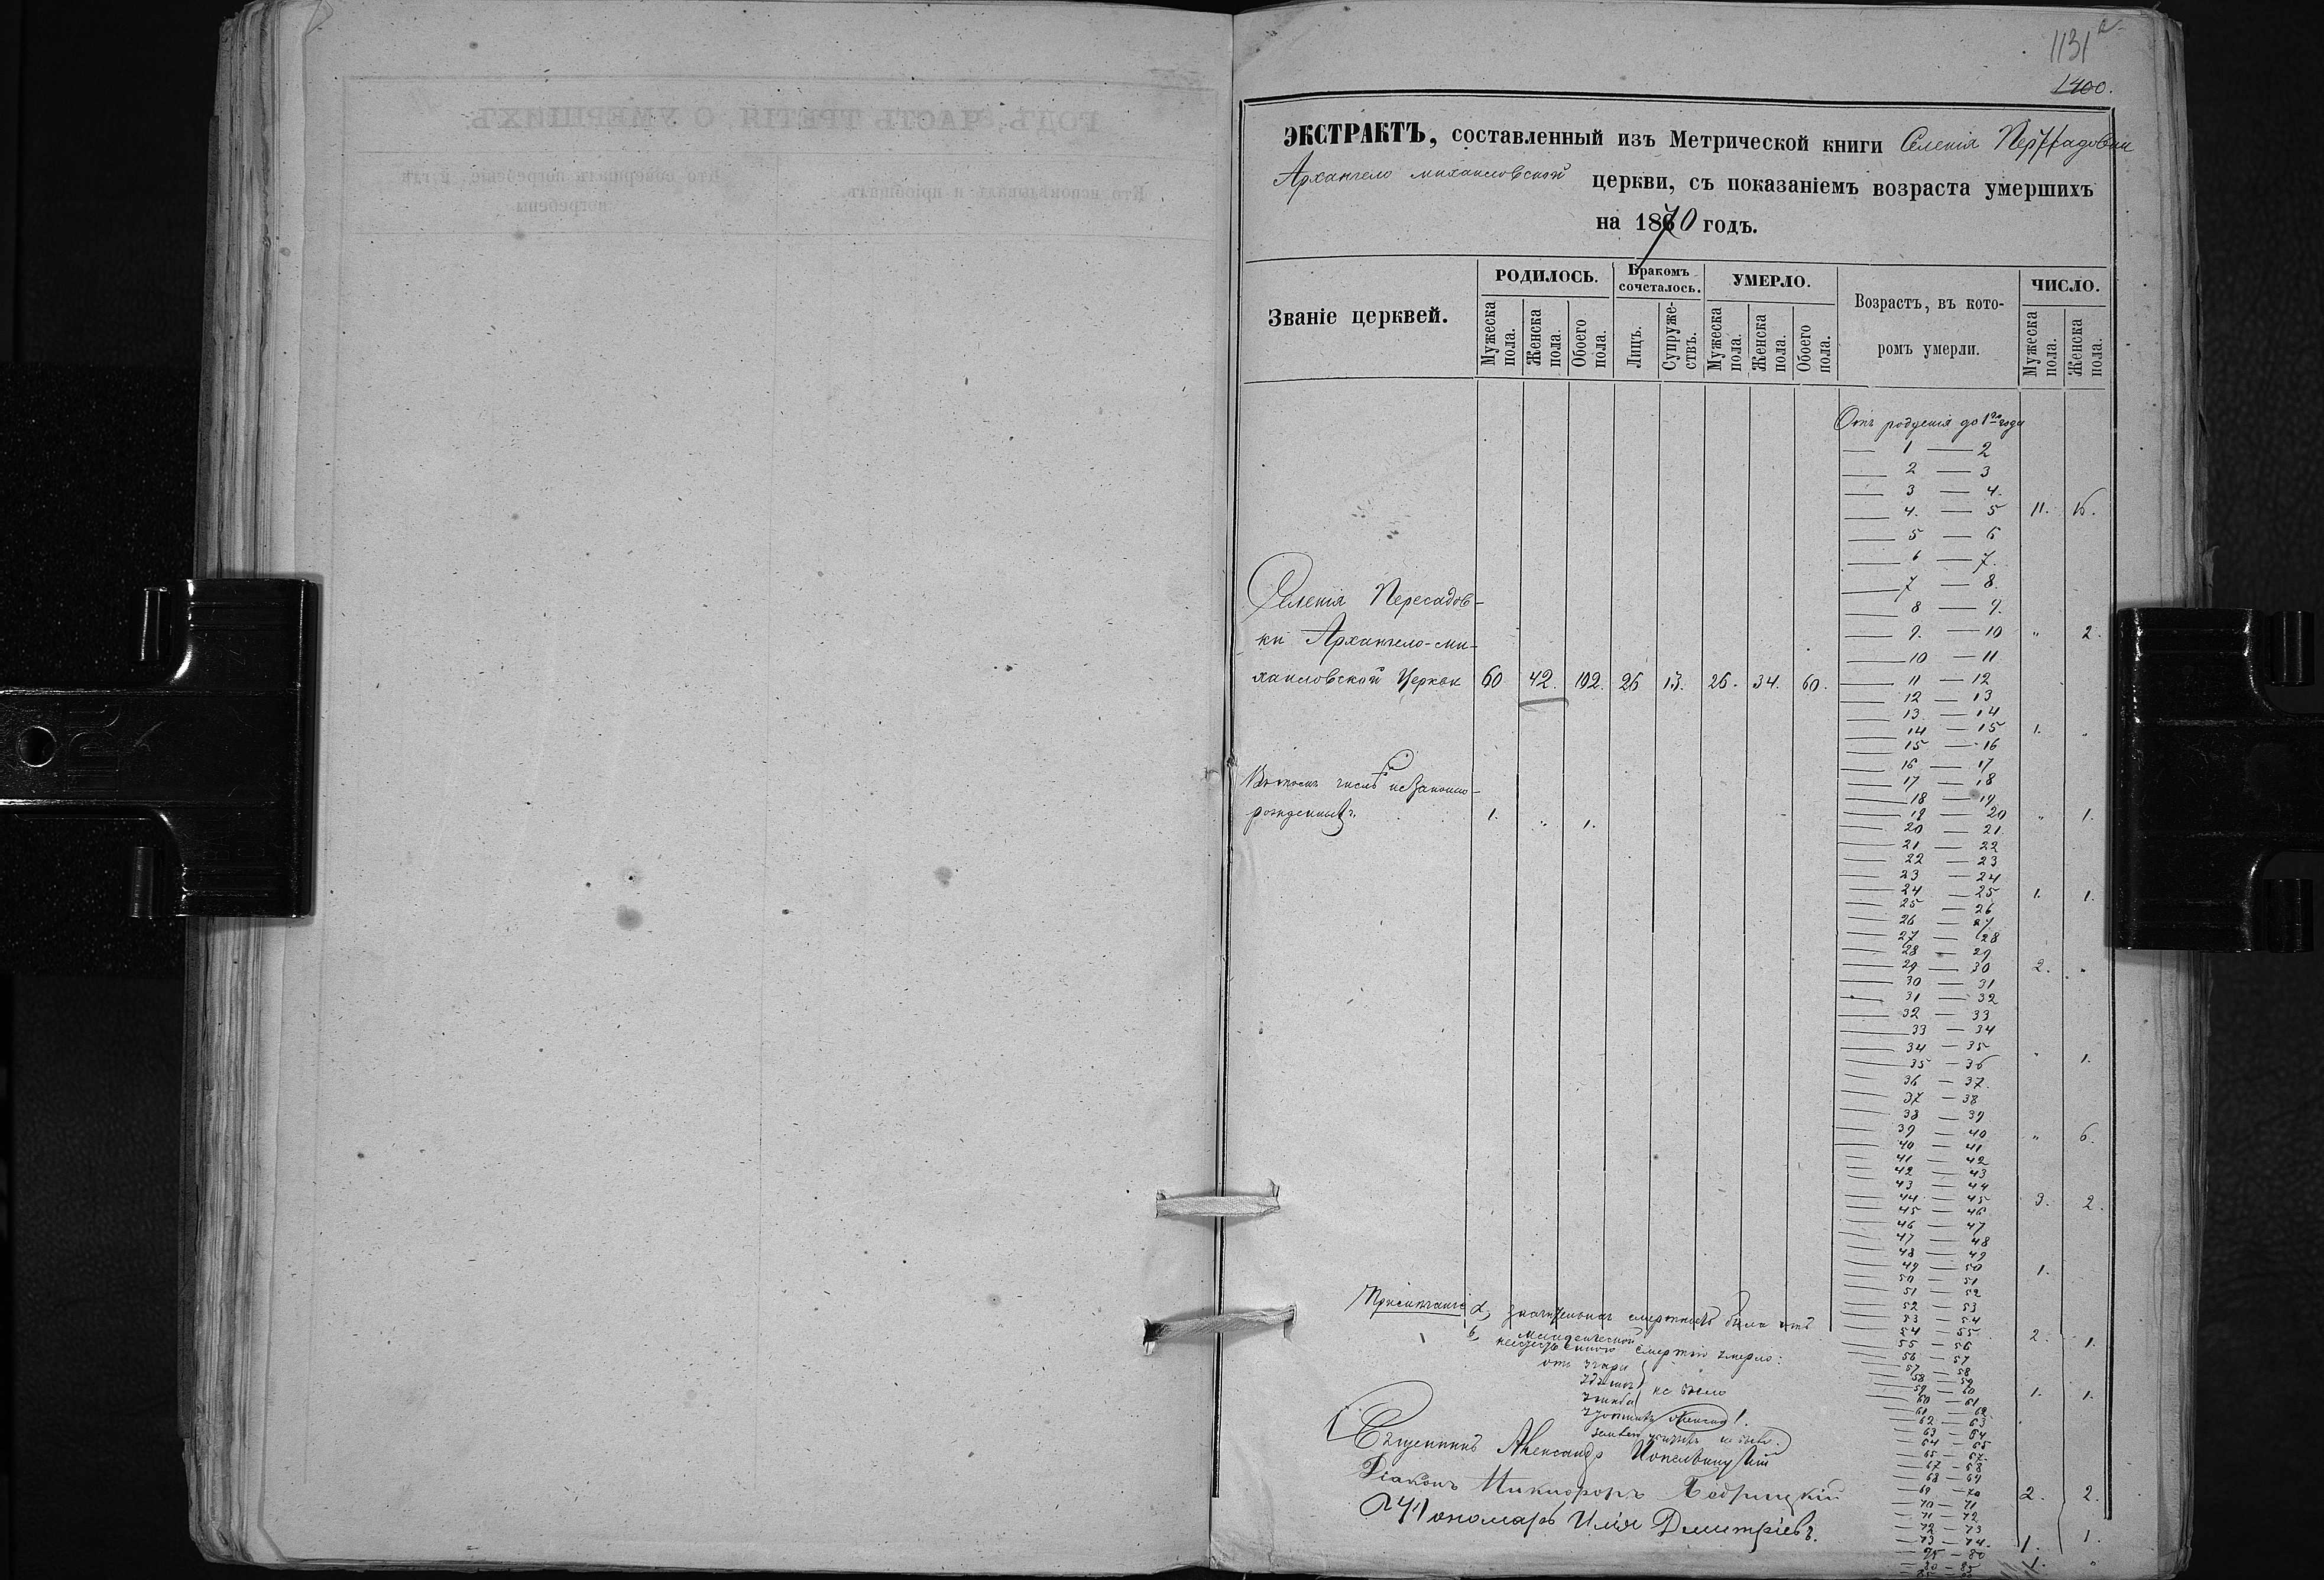 1131
1400.
ЭКСТРАКТЪ, составленный изъ Метрической книги Селенія
Архангело михаиловской церкви, съ показаніемъ возраста умершихъ
на 1870 годъ.
Званіе церквей.
РОДИЛОСЬ.
Мужеска пола.
Женска пола.
Обоего пола.
Бракомъ сочеталось.
Лицъ.
Супружествъ.
УМЕРЛО.
Мужеска пола.
Женска пола.
Обоего пола.
Возрастъ, въ кото-
ромъ умерли.
ЧИСЛО.
Мужеска пола.
Женска пола.
Отъ рожденія до 1го года
1 — 2
2 — 3
3 — 4.
4. — 5 11. 16.
5 — 6
6 — 7.
7 — 8
8 — 9.
9. — 10 „ 2.
10 — 11
Селенія Пересадов-
ки Архангело-ми-
хаиловской Церкви 60 42. 102. 26 13. 26. 34. 60.
11 — 12
12 — 13
13 — 14
14 — 15 1. „
15 — 16
16 — 17
17 — 18
18 — 19
19 — 20 „ 1.
20 — 21.
Въ томъ числѣ незаконно-
рожденныхъ. 1. „ 1.
21 — 22
22 — 23
23 — 24
24 — 25 1. 1.
25 — 26
26 — 27
27 — 28
28 — 29
29 — 30 2. „
30 — 31
31 — 32
32 — 33
33 — 34
34 — 35 „ 1.
35 — 36
36 — 37.
37 — 38
38 — 39
39 — 40 „ 6.
40 — 41
41 — 42
42 — 43
43 — 44
44 — 45 3. 2.
45 — 46
46 — 47
47 — 48
48 — 49
49 — 50 1.
50 — 51
51 — 52
52 — 53
53 — 54
54 — 55 2. 1.
55 — 56
56 — 57
57 — 58
58 — 59
59 — 60 1. 1.
60 — 61
61 — 62
62 — 63
63 — 64
64 — 65
67 — 68
68 — 69
69 — 70 2. 2.
70 — 71
71 — 72
72 — 73
73 — 74. 1. 1.
75 — 80
80 — 85 1. „
Примѣчаніе а, значительная смертность была отъ
младенческой
б, неестественною смертію умерло:
отъ угара
не было
1.
не было.
Священникъ Александръ
Діаконъ Никифоръ
Пономарь Илія Дмитріевъ.
РОДЪ, ЧАСТЬ ТРЕТІЯ, О УМЕРШИХЪ.
Кто исповѣдывалъ и пріобщалъ.
Кто совершалъ погребеніе, и гдѣ
погребены